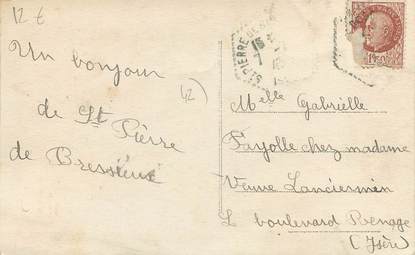 12 €
Un bonjour
de St Pierre
de Bressieux
42
ST PIERRE DE
1F50
Melle Gabrielle
Fayolle chez madame
Veuve
boulevard Renage
(Isère)